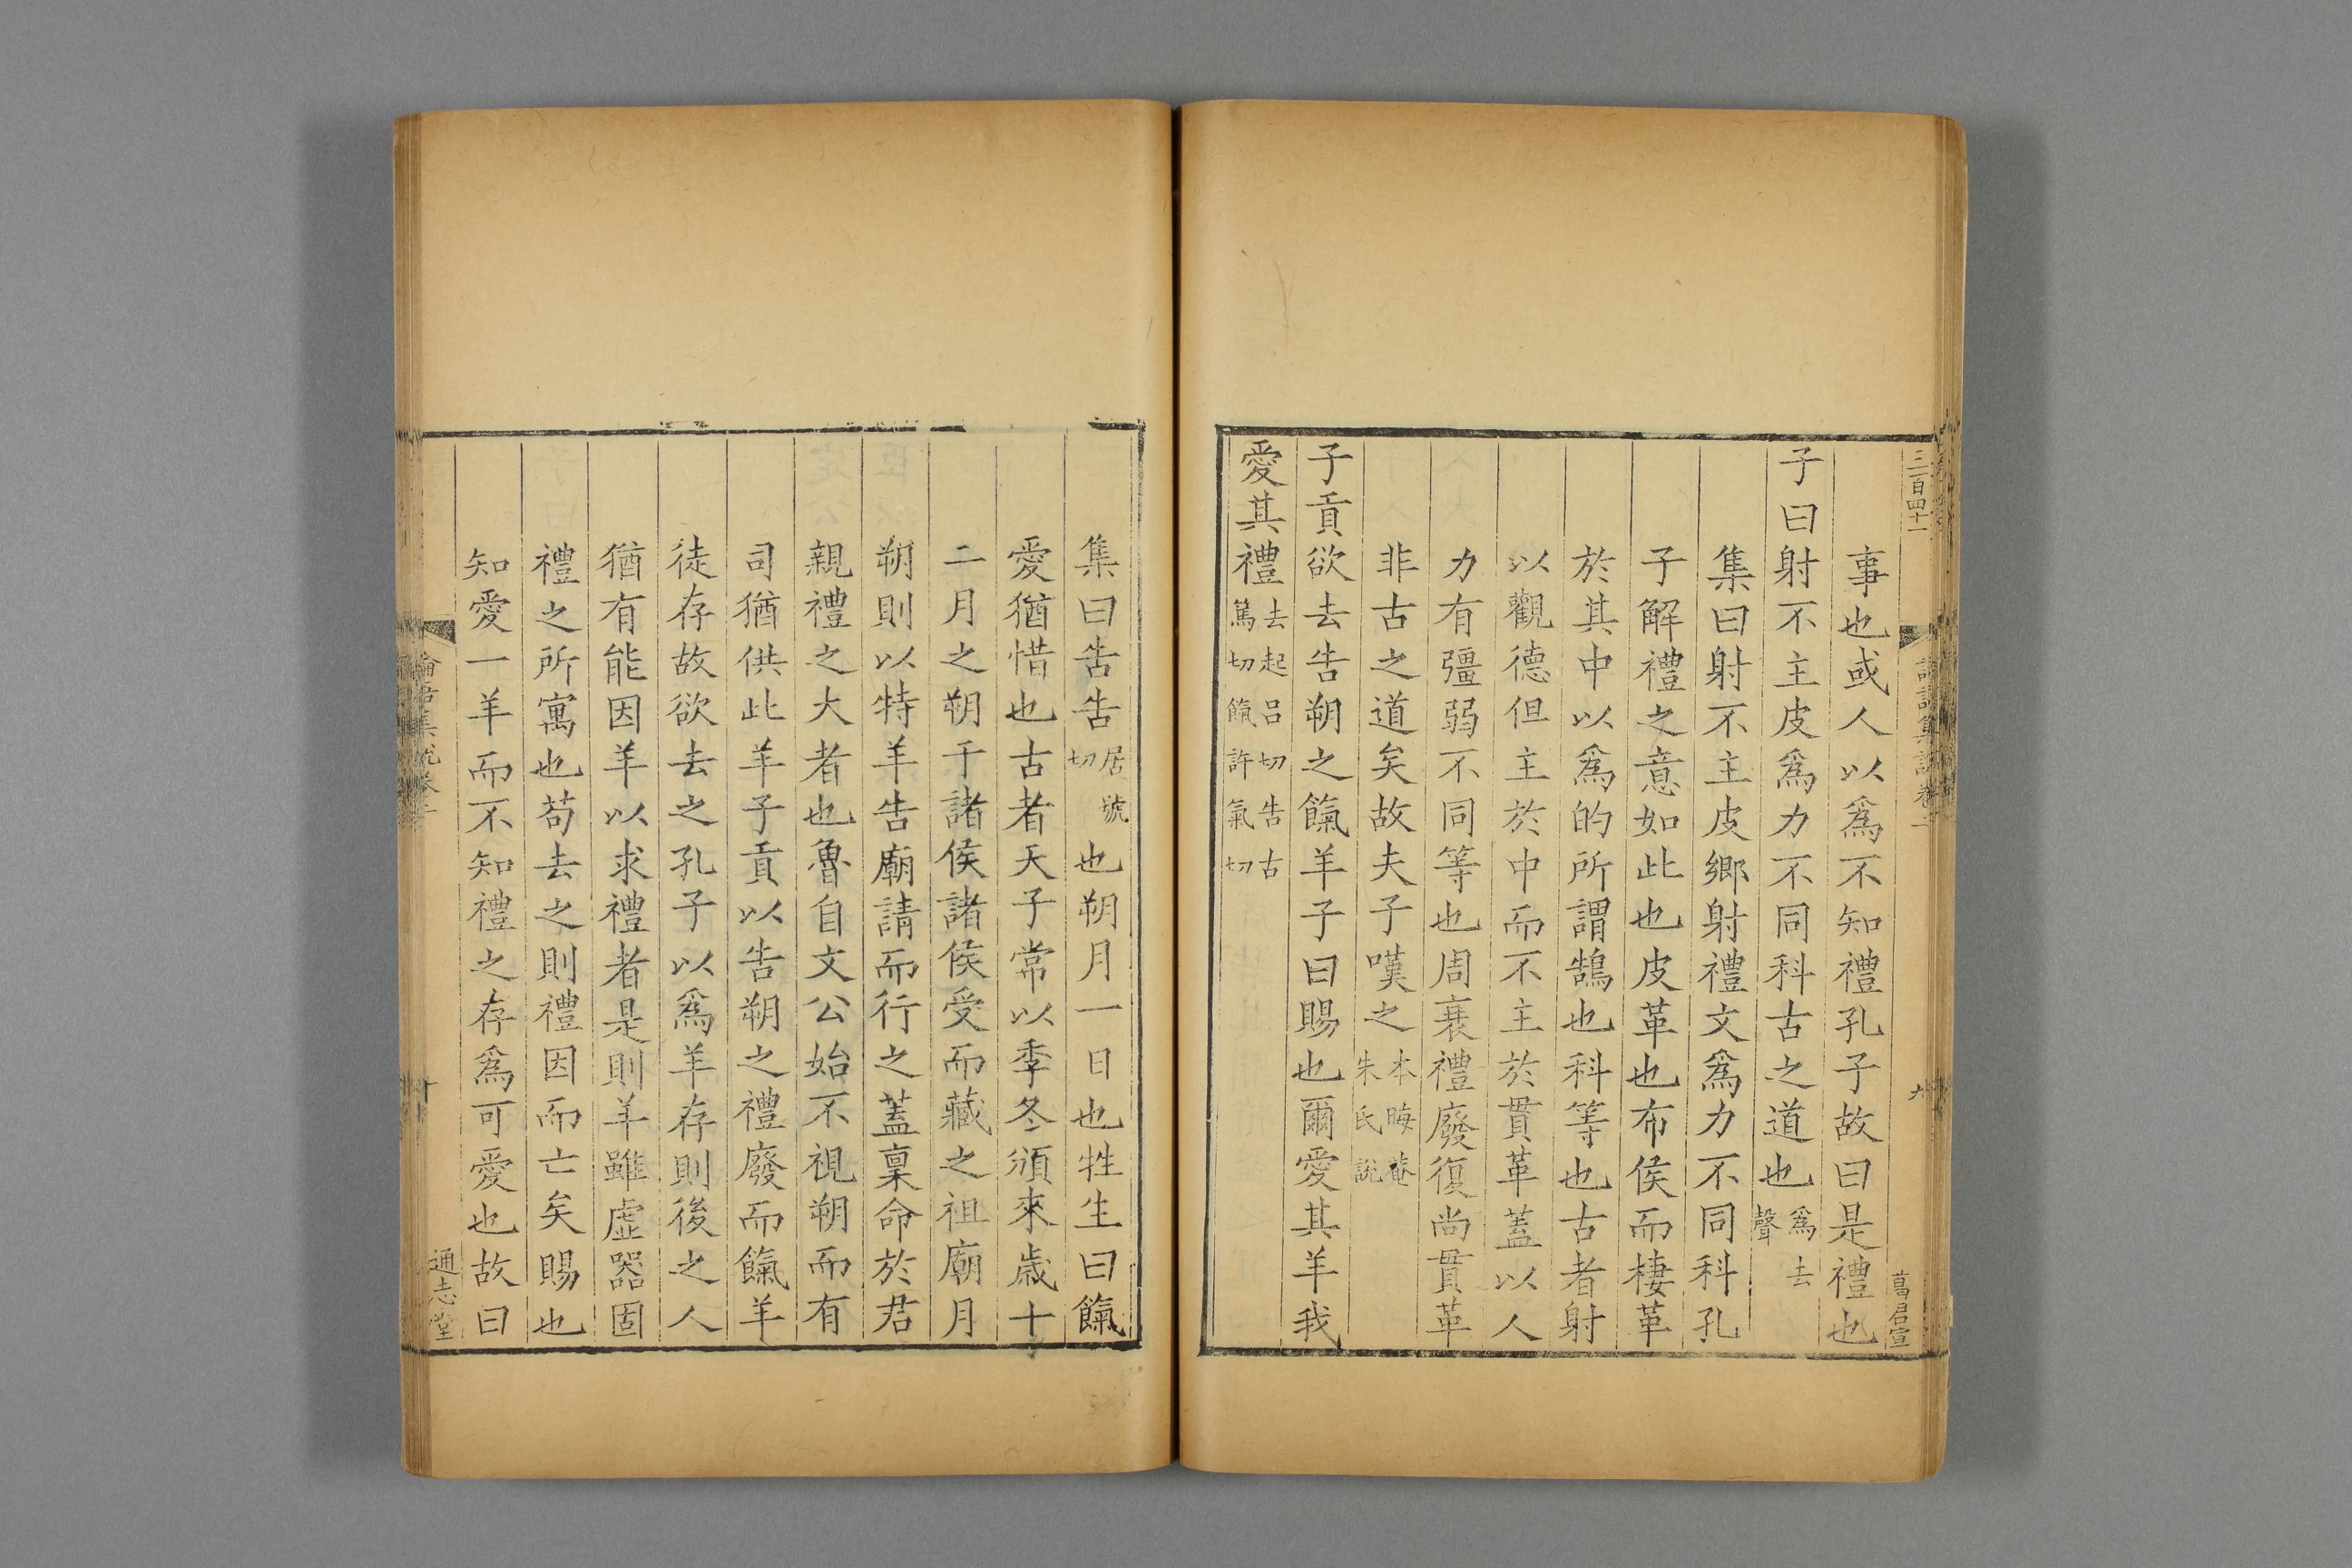 三百四十一
論語集說卷二
九
葛君宣
事也或人以爲不知禮孔子故曰是禮也
子曰射不主皮爲力不同科古之道也爲去聲
集曰射不主皮鄉射禮文爲力不同科孔
子解禮之意如此也皮革也布侯而棲革
於其中以爲的所謂鵠也科等也古者射
以觀德但主於中而不主於貫革蓋以人
力有彊弱不同等也周衰禮廢復尚貫革
非古之道矣故夫子嘆之本晦菴朱氏說
子貢欲去告朔之餼羊子曰賜也爾愛其羊我
愛其禮去起呂切告古篤切餼許氣切
集曰告告居號切也朔月一日也牲生曰餼
愛猶惜也古者天子常以季冬頒來歲十
二月之朔于諸侯諸侯受而藏之祖廟月
朔則以特羊告廟請而行之蓋稟命於君
親禮之大者也魯自文公始不視朔而有
司猶供此羊子貢以告朔之禮廢而餼羊
徒存故欲去之孔子以爲羊存則後之人
猶有能因羊以求禮者是則羊雖虛器固
禮之所寓也苟去之則禮因而亡矣賜也
知愛一羊而不知禮之存爲可愛也故曰
論語集說卷二
十
通志堂